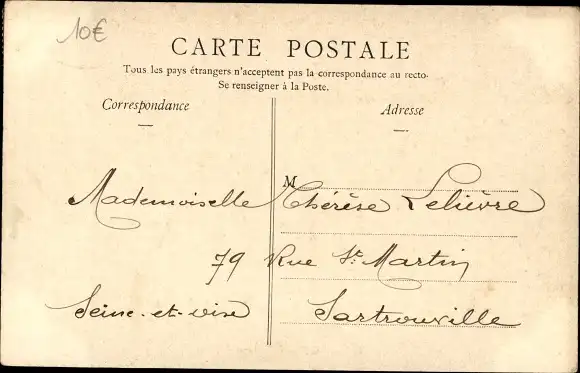 10€
CARTE POSTALE
Tous les pays étrangers n'acceptent pas la correspondance au recto.
Se renseigner à la Poste.
Correspondance
Adresse
M
Mademoiselle Thérèse Lelièvre
79 Rue St. Martin
Seine-et-oise Sartrouville